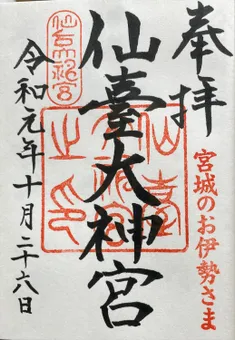 奉拝
宮城のお伊勢さま
仙臺大神宮
令和元年十月二十六日